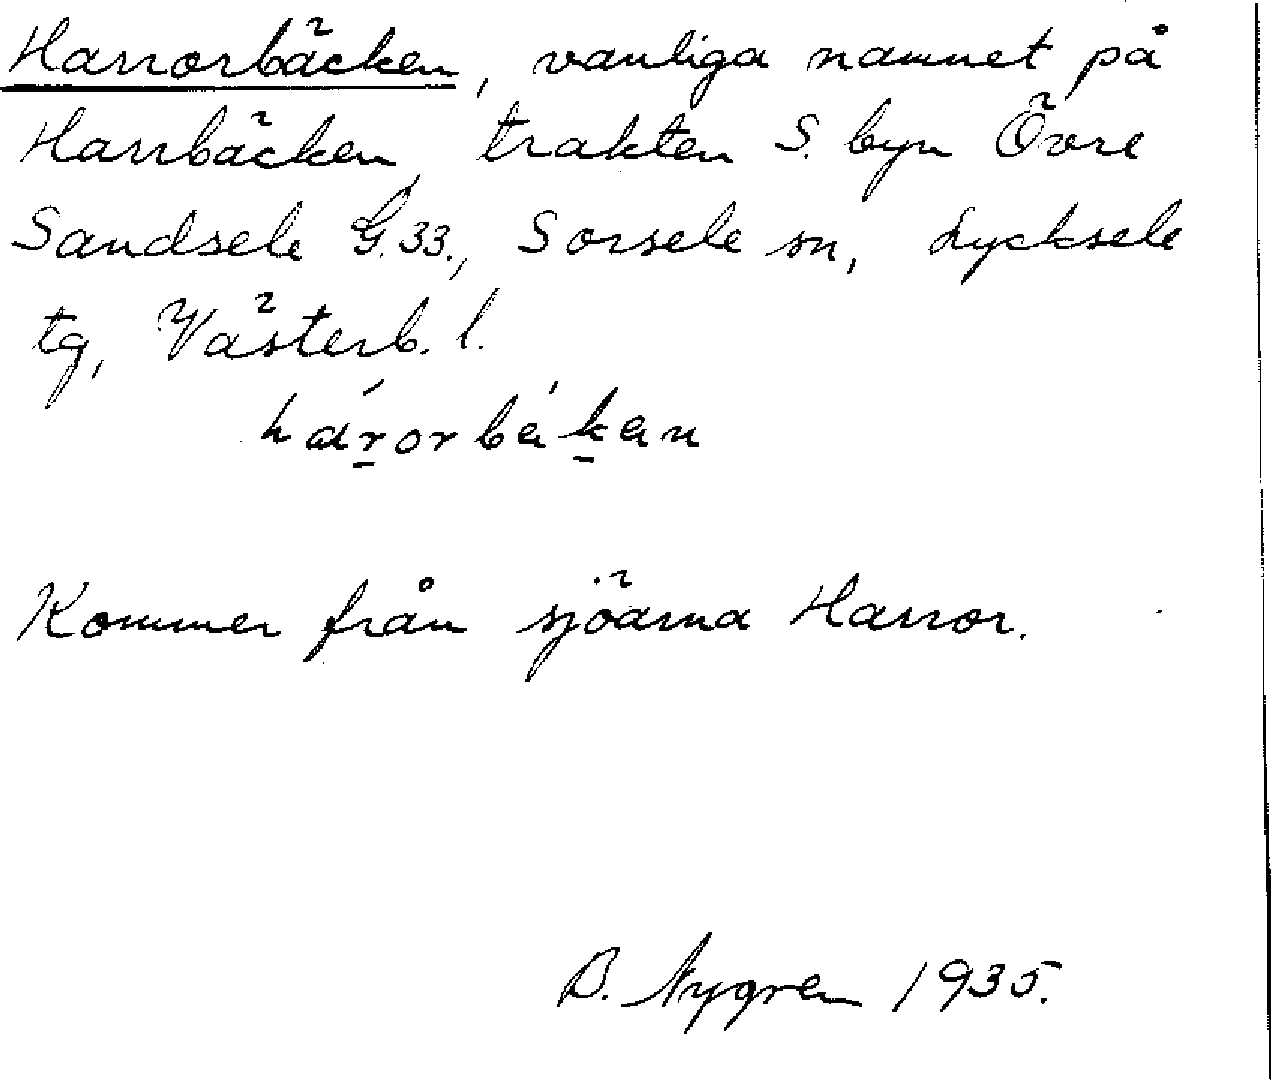 Harrorbäcken, vanliga namnet på
Harrbäcken, trakten S. byn Övre
Sandsele G.33., Sorsele sn, Lycksele
tg, Västerb. l.
hárorbèkan
Kommer från sjöarna Harror.
B. Nygren 1935.